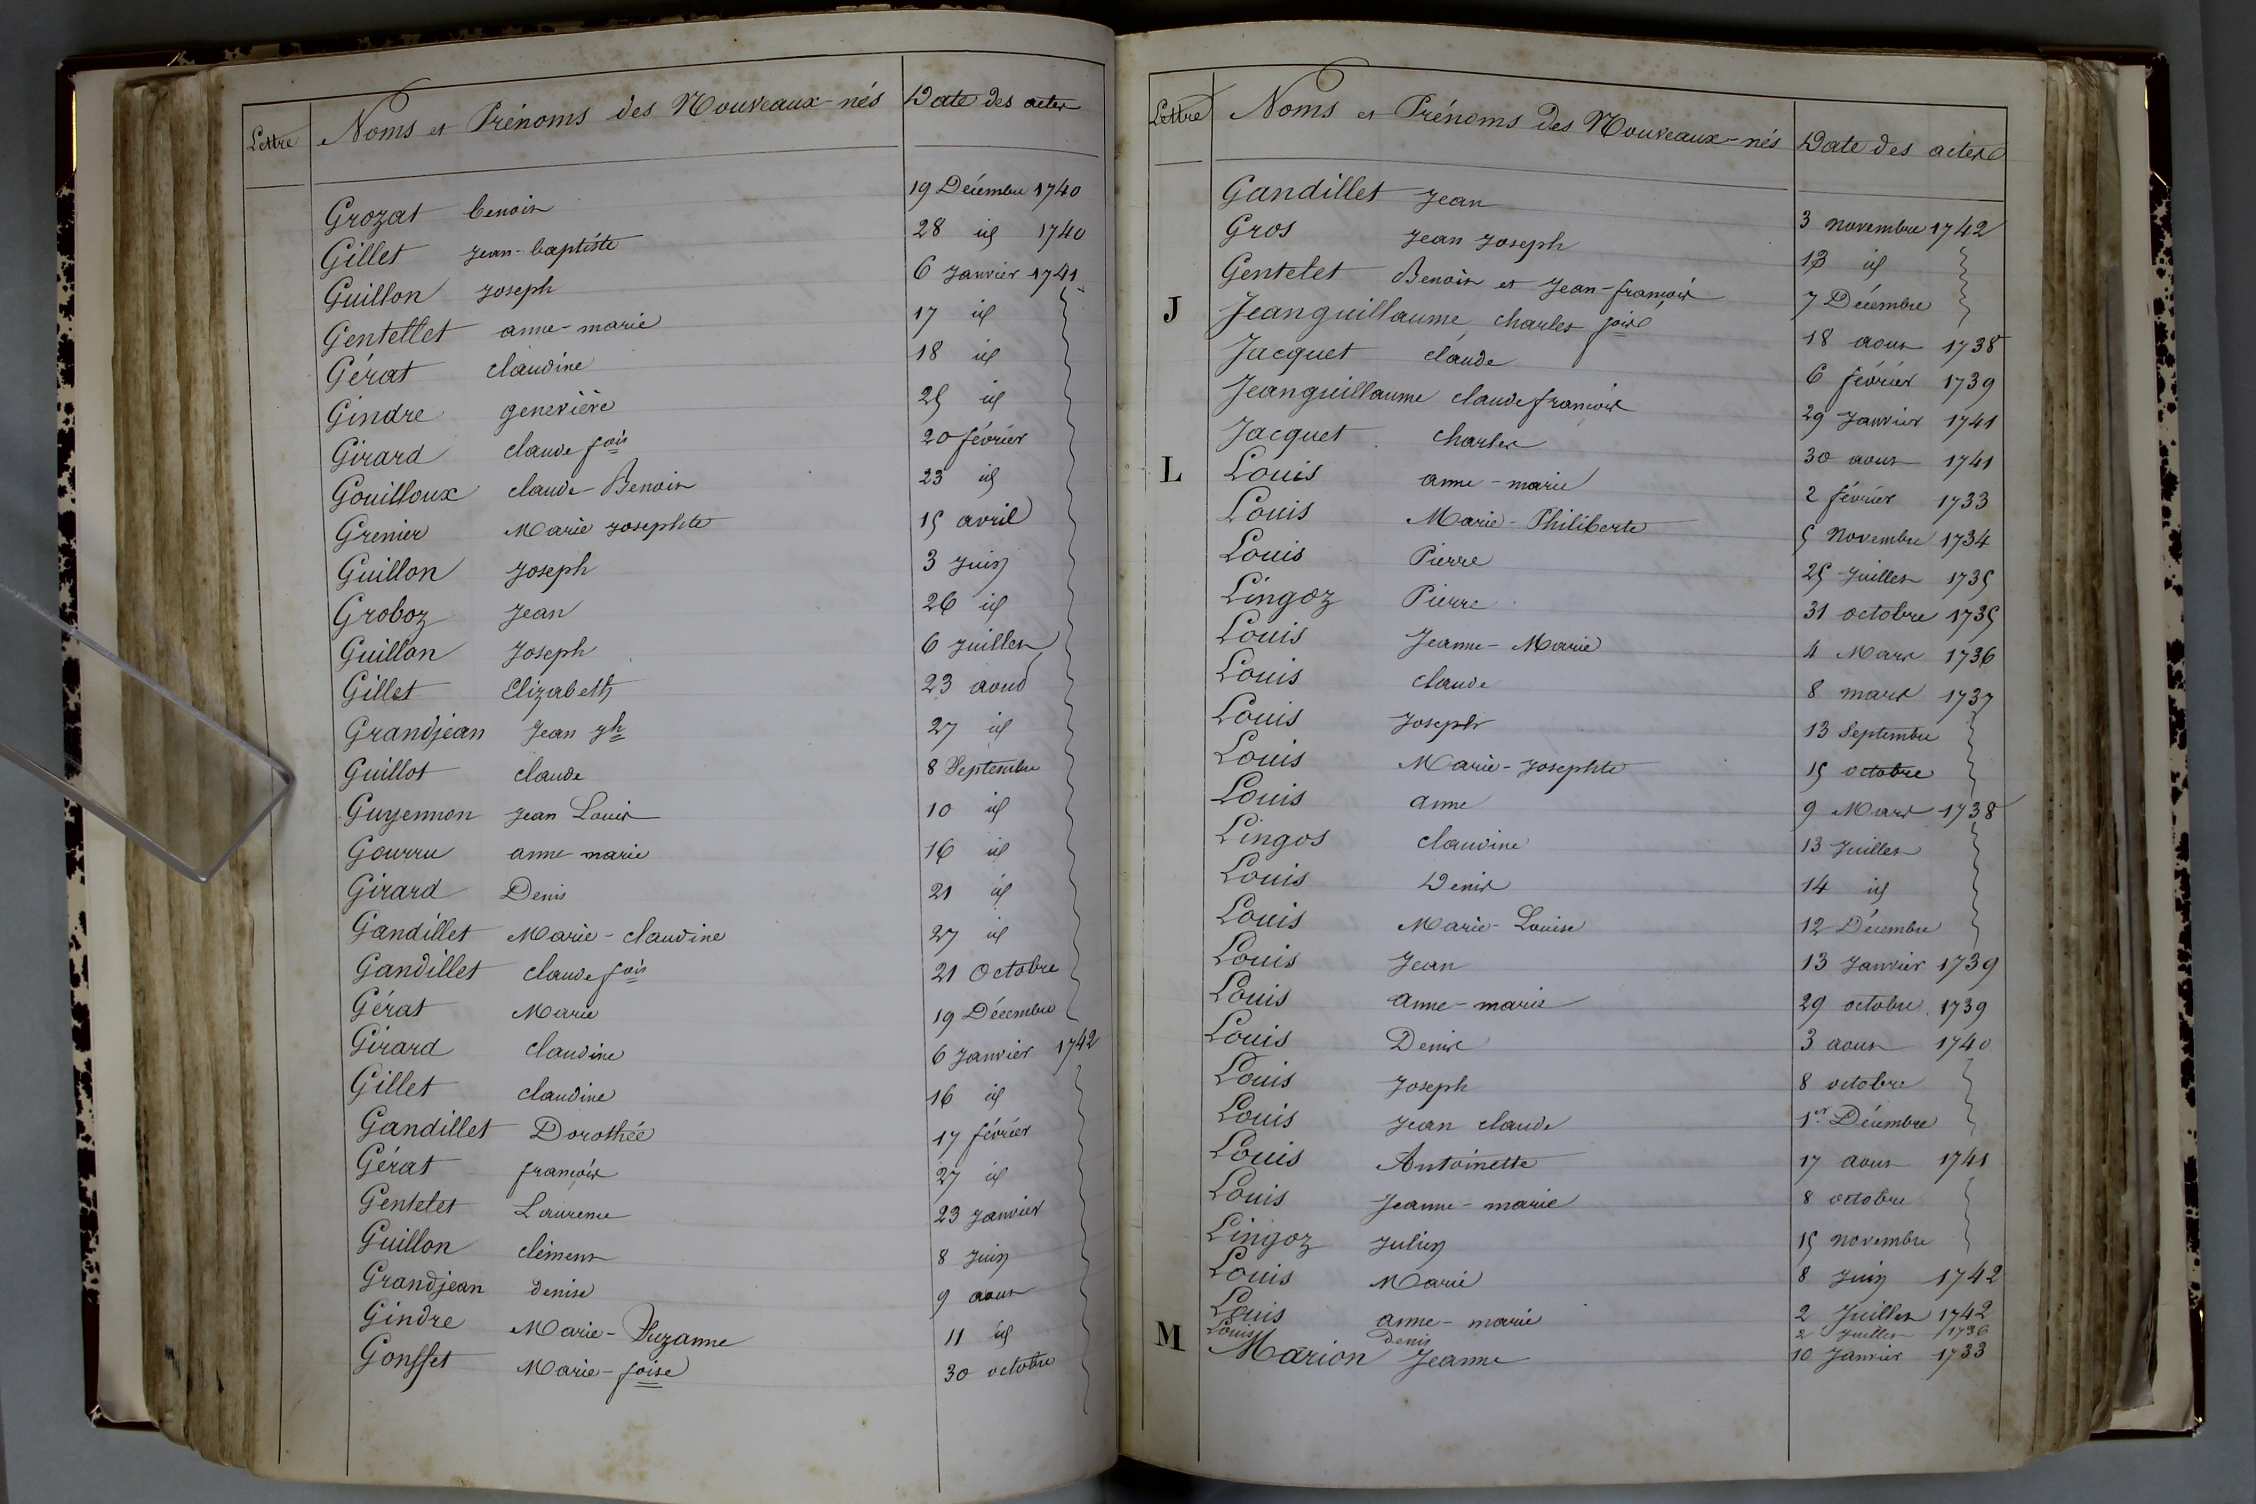 Lettre Noms et Prénoms des Nouveaux-nés Date des actes
Grozat benoit 19 Décembre 1740
Gillet Jean-baptiste 28 id 1740
Guillon Joseph 6 Janvier 1741
Gentellet anne-marie 17 id
Gérat claudine 18 id
Gindre geneviève 25 id
Girard claude fois 20 février
Gouilloux claude-Benoit 23 id
Grenier Marie Josephte 15 avril
Guillon Joseph 3 Juin
Groboz Jean 26 id
Guillon Joseph 6 Juillet
Gillet Elizabeth 23 aout
Grandjean Jean Jh 27 id
Guillot claude 8 Septembre
Guyennon Jean Louis 10 id
Gourru anne marie 16 id
Girard Denis 21 id
Gandillet Marie-claudine 27 id
Gandillet claude fois 21 Octobre
Gérat Marie 19 Décembre
Girard claudine 6 Janvier 1742
Gillet claudine 16 id
Gandillet Dorothée 17 février
Gérat françois 27 id
Gentelet Laurence 23 Janvier
Guillon clément 8 Juin
Grandjean denise 9 aout
Gindre Marie-Suzanne 11 id
Gonsset Marie-foise 30 octobre
Lettre Noms et Prénoms des Nouveaux-nés Date des actes
Gandillet Jean 3 novembre 1742
Gros Jean Joseph 13 id
Gentelet Benoit et Jean-françois 7 Décembre
J Jeanguillaume charles fois 18 aout 1738
Jacquet claude 6 février 1739
Jeanguillaume claude françois 29 Janvier 1741
Jacquet charles 30 aout 1741
L Louis anne-marie 2 février 1733
Louis Marie-Philiberte 5 Novembre 1734
Louis Pierre 25 Juillet 1735
Lingoz Pierre 31 octobre 1735
Louis Jeanne-Marie 4 Mars 1736
Louis claude 8 mars 1737
Louis Joseph 13 Septembre
Louis Marie-Josephte 15 octobre
Louis anne 9 Mars 1738
Lingos claudine 13 Juillet
Louis Denis 14 id
Louis Marie-Louise 12 Décembre
Louis Jean 13 Janvier 1739
Louis anne-marie 29 octobre 1739
Louis Denise 3 aout 1740
Louis Joseph 8 octobre
Louis Jean claude 1er Décembre
Louis Antoinette 17 aout 1741
Louis Jeanne-marie 8 octobre
Lingoz Julien 15 novembre
Louis Marie 8 Juin 1742
Louis anne-marie 2 Juillet 1742
Louis Denis 2 Juillet 1736
M Marion Jeanne 10 Janvier 1733